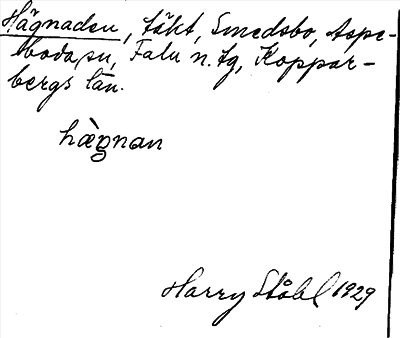 Hägnaden, täkt, Smedsbo, Aspe-
boda sn, Falu n. tg, Koppar-
bergs län.
hàgnan
Harry Ståhl 1929